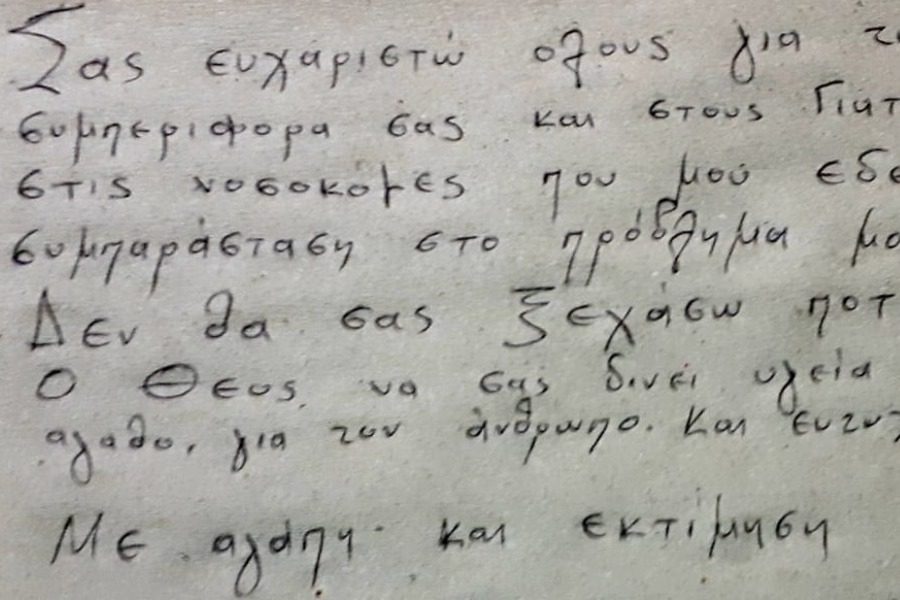 Σας ευχαριστώ ολους για τ
συμπεριφορα σας και στους Γιατ
στις νοσοκόμες που μού εδε
συμπαράσταση στο πρόβλημα μο
Δεν θα σας ξεχάσω ποτ
Ο Θεος να σας δινει υγεία
αγαθο, για τον άνθρωπο. Και ευτυ
Με αγάπη και εκτίμηση